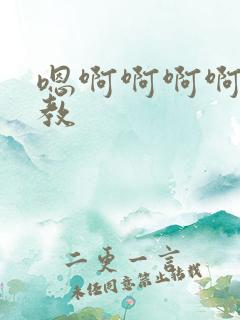 嗯啊啊啊啊
教
二更一言
未经同意禁止转载